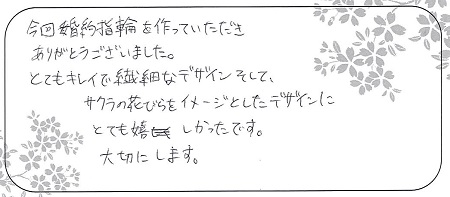 今回婚約指輪を作っていただき
ありがとうございました。
とてもキレイで繊細なデザインそして、
サクラの花びらをイメージとしたデザインに
とても嬉しかったです。
大切にします。